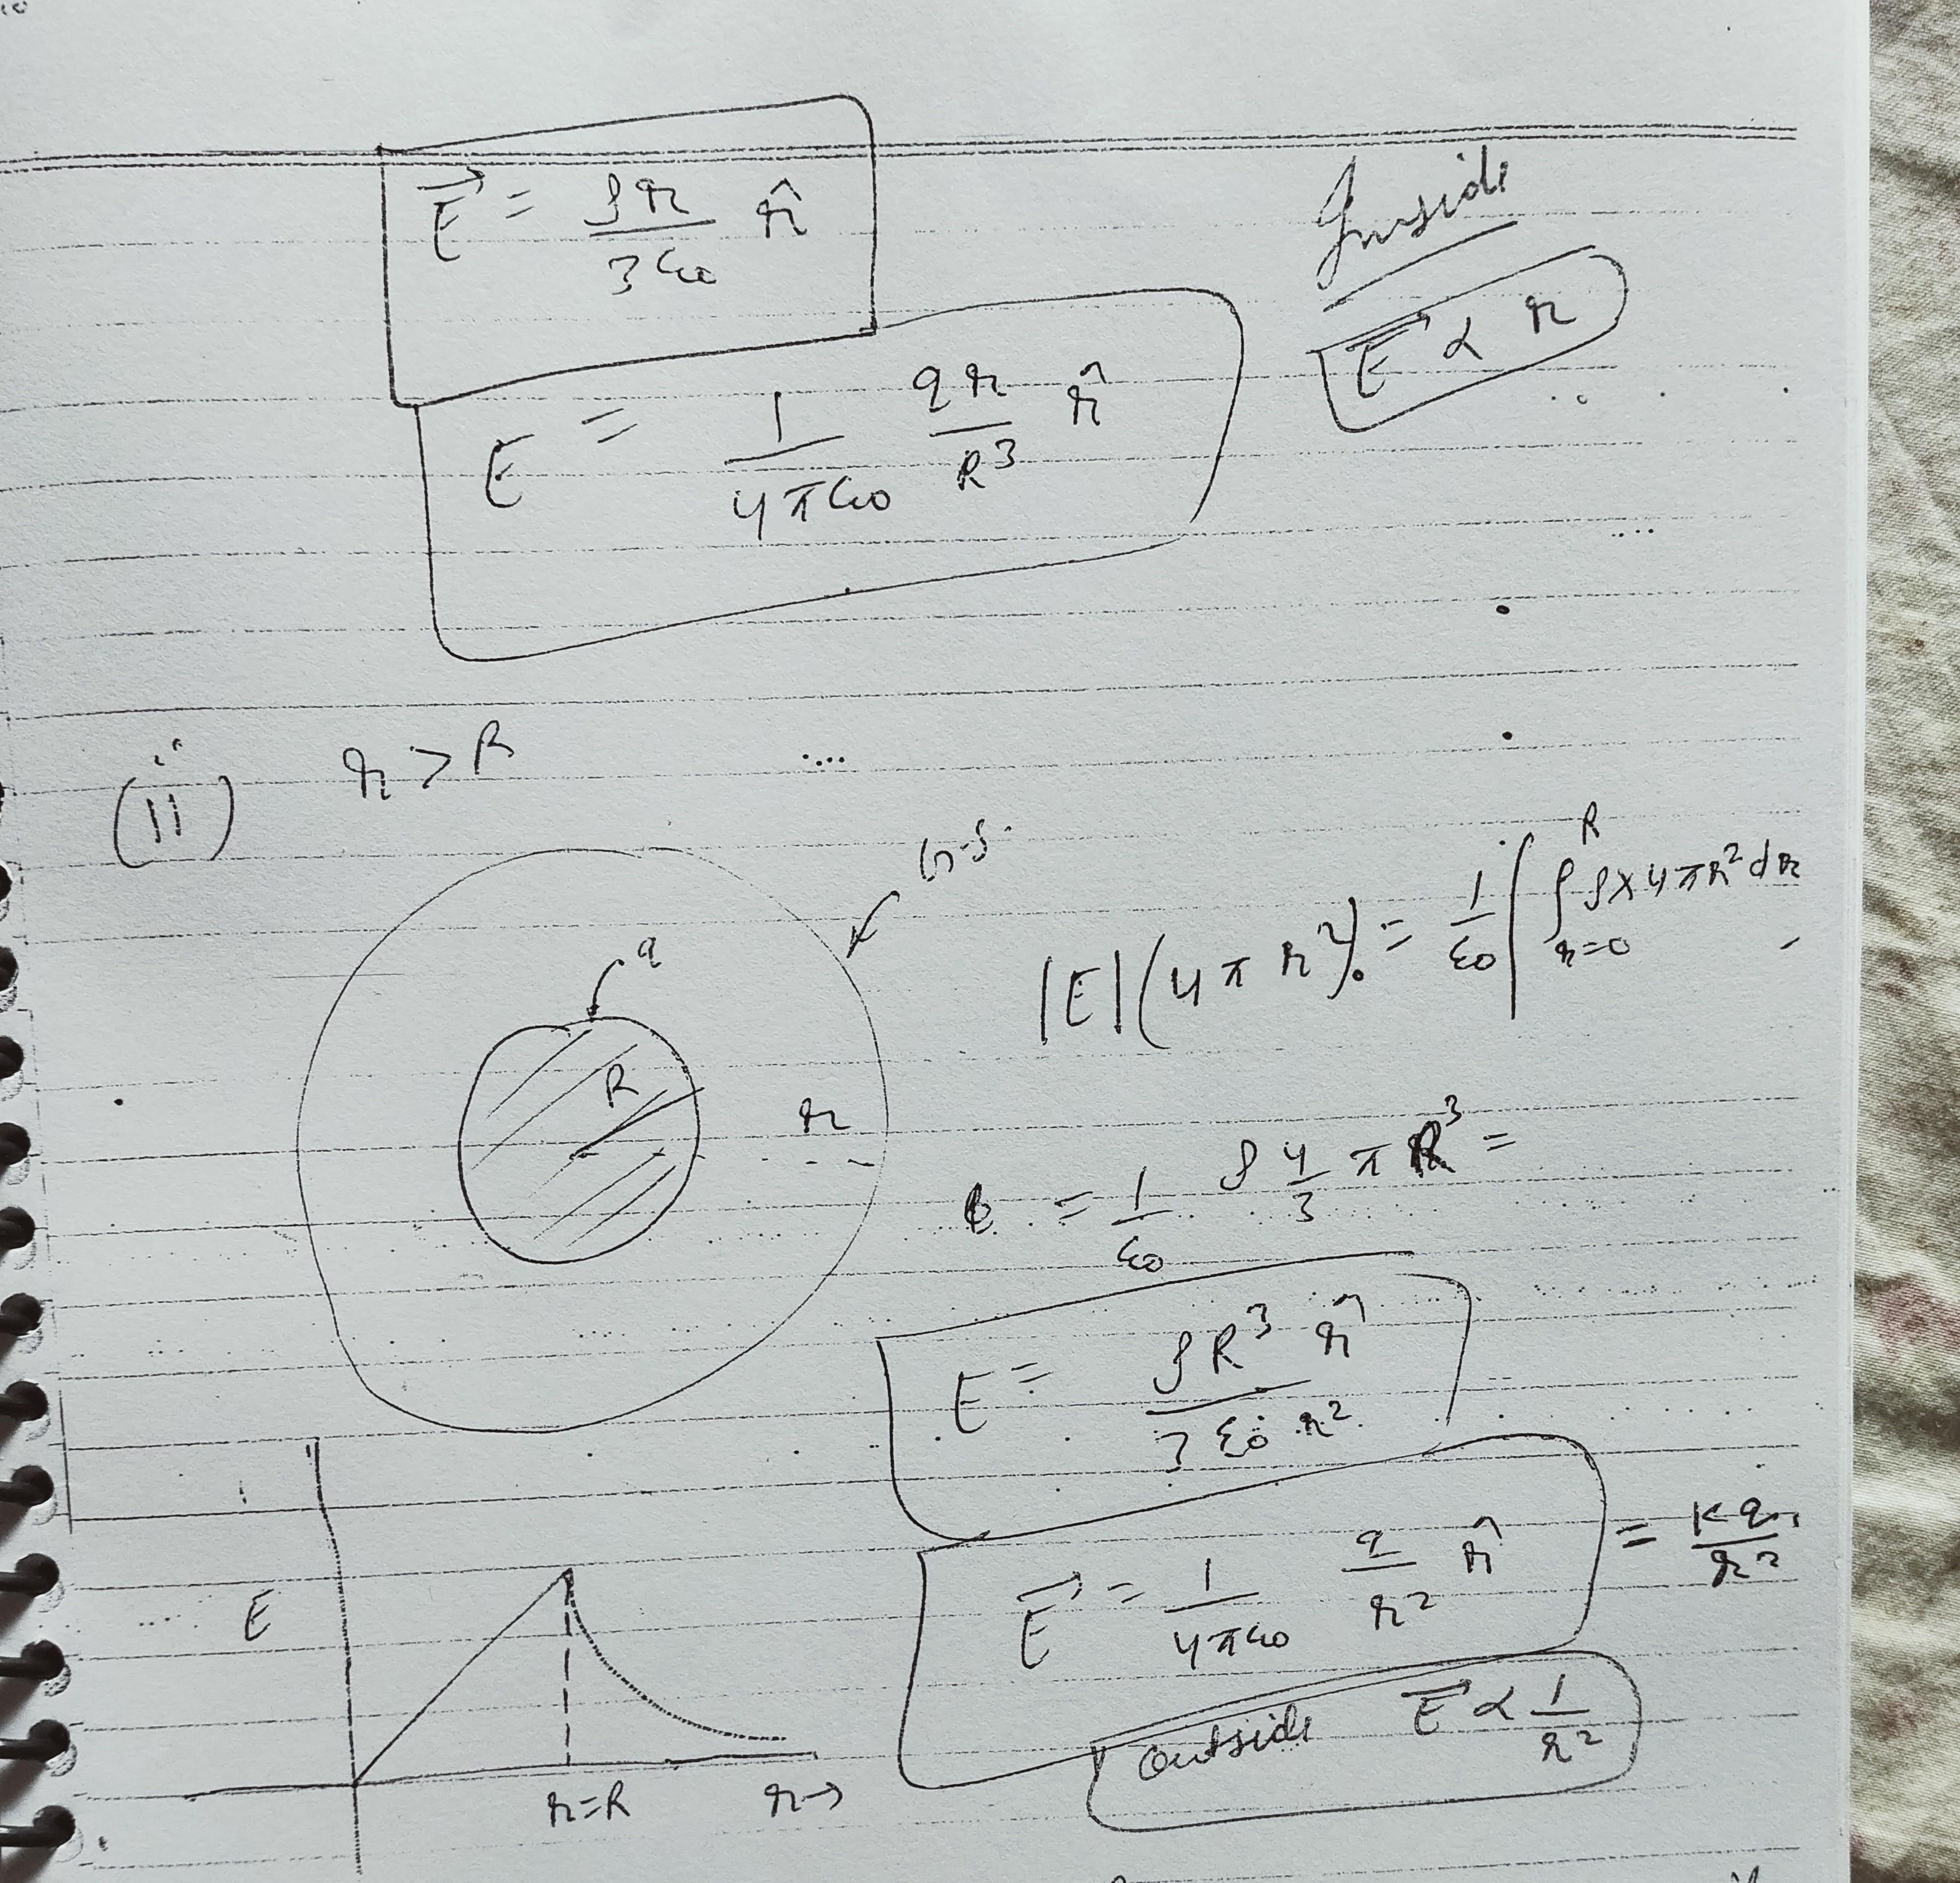 Inside
E⃗ = ρr / 3ε₀ r̂
E⃗ ∝ r
E = 1/4πε₀ qr/R³ r̂
(ii) r > R
G·S·
q
R
r
|E|(4πr²) = 1/ε₀ ∫ᵣ₌₀ᴿ ρ×4πr²dr
= 1/ε₀ ρ 4/3 πR³ =
E = ρR³ r̂ / 3ε₀ r²
E⃗ = 1/4πε₀ q/r² r̂ = Kq/r²
Outside E⃗ ∝ 1/r²
E
r=R r→